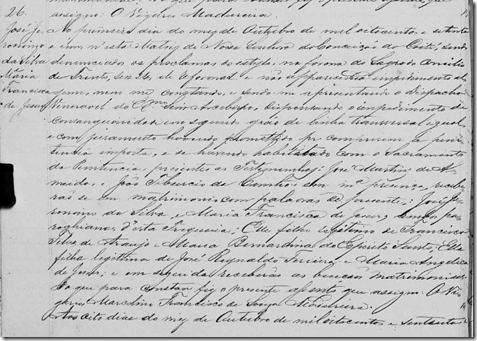 assigno: O Vigario Madureira.
26.
José Je
ronimo
da Silva
Maria
Francisca
de Jesus
Ao primeiro dia do mez de Outubro de mil oitocentos, e setenta
e um n'esta Matriz de Nossa Senhora da Conceição do Coité, sendo
denunciados os proclamas do estylo na forma do Sagrado Concilio
de Trento, Sez 24, de Reformat. e não apparecendo impedimento al
gum, nem me constando, e sendo me apresentado o despacho
do Arcebispo, dispensando o impedimento de
consanguinidade em segundo gráo de linha transversal igual,
e com juramento havendo promettido de cumprirem a peni
tencia imposta, e se havendo habilitado com o Sacramento
da Penitencia, presentes as Testemunhas: José Martins de Al
meida, e João Tiburcio da em mª presença, recebe
rão-se em matrimonio com palavras de presente: José Je
ronimo da Silva, e Maria Francisca de Jesus, meus pa
rochianos d'esta Freguesia; Elle filho legitimo de Francisco
Felis de Araujo, e Maria Bernardina do Espirito Santo; Ella
filha legitima de José Reynaldo Ferreira, e Maria Angelica
de Jesus; e em seguida receberão as bençãos matrimoniaes.
Do que para constar fiz o presente assento que assigno. O Vi
gario Marcolino Francisco de Souza Madureira.
Aos oito dias do mez de Outubro de mil oitocentos, e setenta e